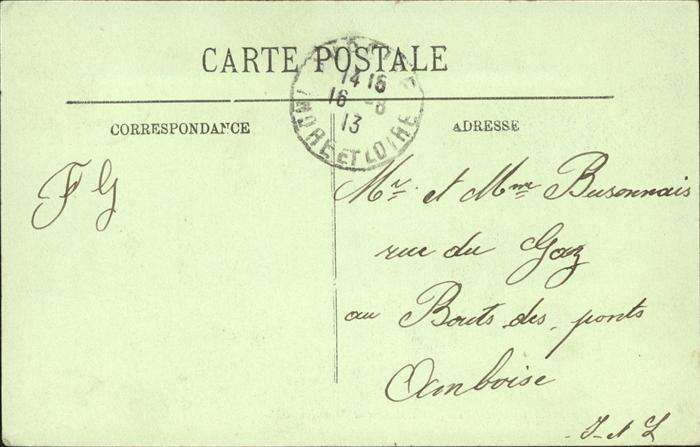 CARTE POSTALE
14 15
16 -8
13
INDRE ET LOIRE
CORRESPONDANCE
ADRESSE
F G
Mr. et Mme Busonnais
rue du Gaz
au Bouts des ponts
Amboise
I-et L